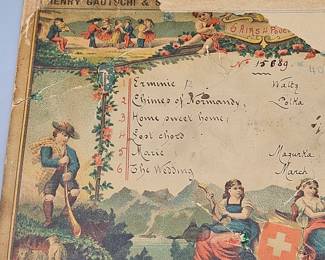 HENRY GAUTSCHI & S
6 AIRS
No 15689.
1 Erminie Waltz
2 Chimes of Normandy, Polka
3 Home sweet home,
4 Lost chord
5 Marie Mazurka
6 The Wedding March